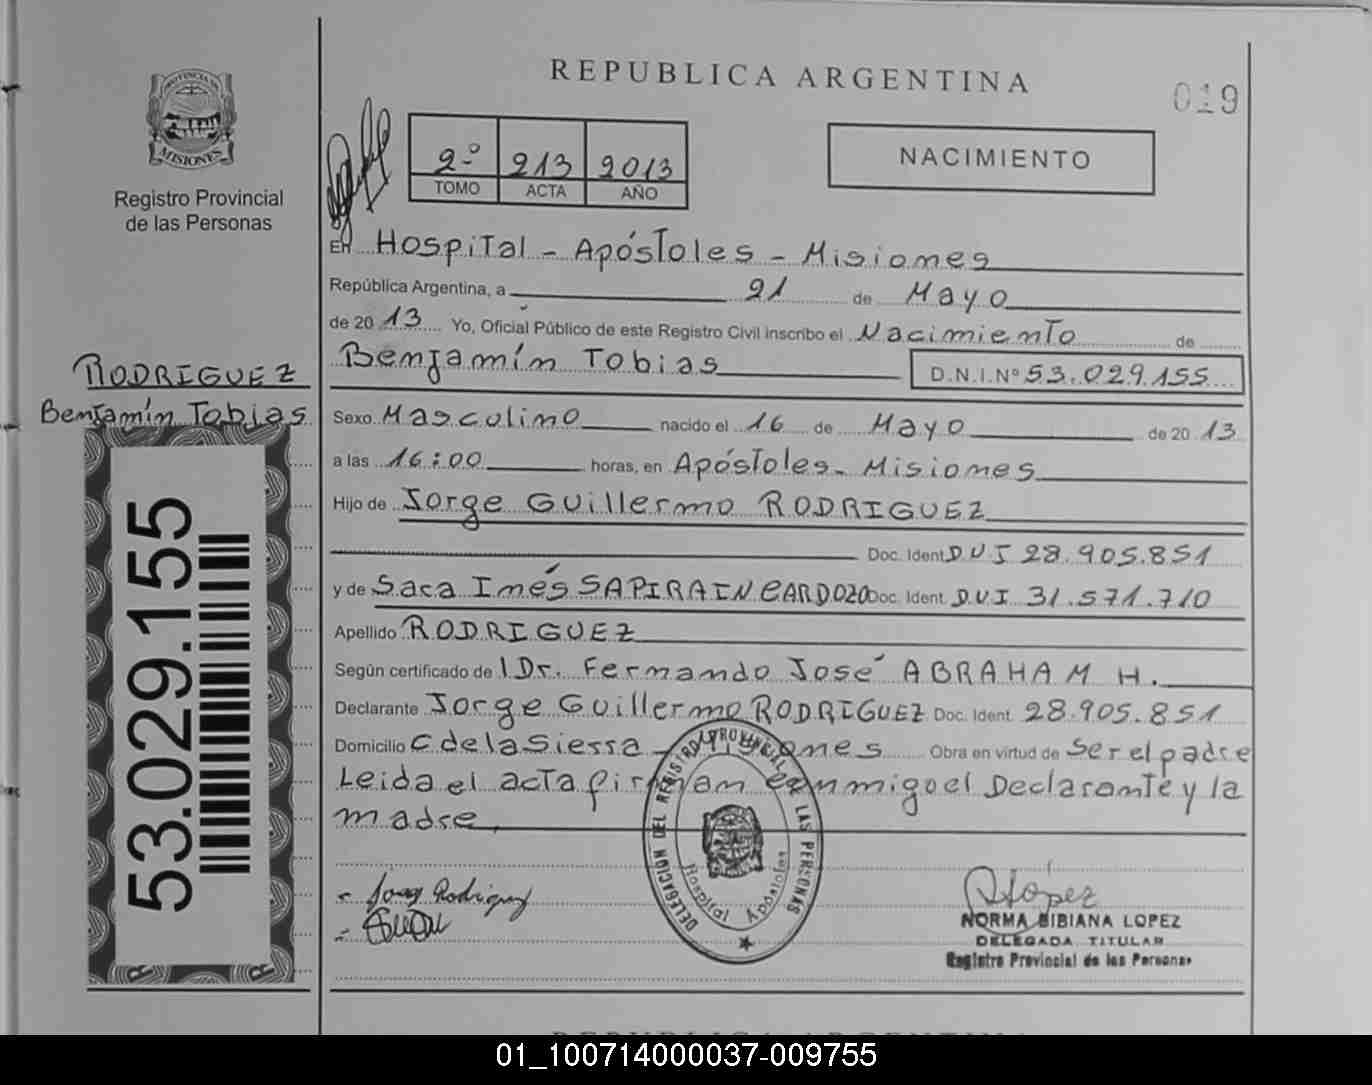 REPUBLICA ARGENTINA
019
PROVINCIA DE
MISIONES
Registro Provincial
de las Personas
2º 213 2013
TOMO ACTA AÑO
NACIMIENTO
En Hospital - Apóstoles - Misiones
República Argentina, a 21 de Mayo
de 2013 Yo, Oficial Público de este Registro Civil inscribo el Nacimiento de
Benjamín Tobias D.N.I.Nº 53.029.155
RODRIGUEZ
Benjamín Tobias
Sexo Masculino nacido el 16 de Mayo de 2013
a las 16:00 horas, en Apóstoles - Misiones
Hijo de Jorge Guillermo RODRIGUEZ
Doc. Ident. D U I 28.905.851
y de Sara Inés SAPIRAIN CARDOZO Doc. Ident. D U I 31.571.710
Apellido RODRIGUEZ
Según certificado de l Dr. Fernando José ABRAHAM H.
Declarante Jorge Guillermo RODRIGUEZ Doc. Ident. 28.905.851
Domicilio C de la Sierra - Misiones Obra en virtud de Ser el padre
Leida el acta firman conmigo el Declarante y la
madre.
53.029.155
DELEGACION DEL REGISTRO PROVINCIAL DE LAS PERSONAS
Hospital Apóstoles
- Jorge Rodriguez
NLopez
NORMA BIBIANA LOPEZ
DELEGADA TITULAR
Registro Provincial de las Personas
REPUBLICA ARGENTINA
01_100714000037-009755